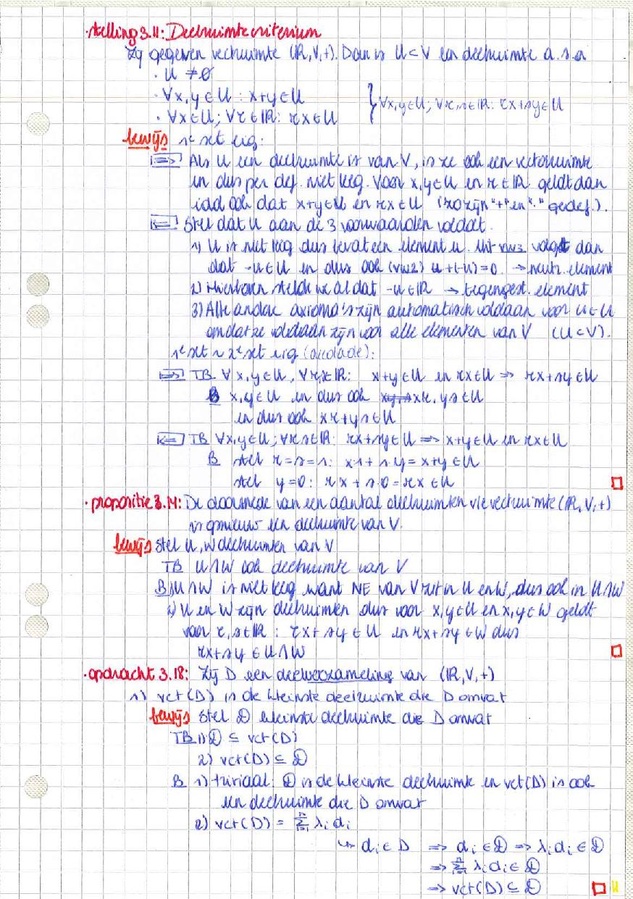 • stelling 3.11: Deelruimtecriterium
Zij gegeven vectruimte (ℝ,V,+). Dan is U⊂V een deelruimte a.s.a
• U ≠ ∅
• ∀x,y∈U : x+y∈U
• ∀x∈U; ∀r∈ℝ: rx∈U } ∀x,y∈U; ∀r,s∈ℝ: rx+sy∈U
bewijs 1e set eig.
⟹ Als U een deelruimte is van V, is ze ook een vectorruimte
en dus per def. niet leeg. Voor x,y∈U en r∈ℝ geldt dan
idd ook dat x+y∈U en rx∈U (zo zijn "+" en "." gedef.).
⟸ Stel dat U aan de 3 voorwaarden voldoet.
1) U is niet leeg dus bevat een element u. Uit vw3 volgt dan
dat -u∈U en dus ook (vw2) u+(-u)=0. → neutr. element
2) Hierboven stelde we al dat -u∈ℝ → tegengest. element
3) Alle andere axioma's zijn automatisch voldaan voor u∈U
omdat ze voldaan zijn voor alle elementen van V (U⊂V).
1e set ~ 2e set eig (accolade):
⟹ TB ∀x,y∈U, ∀r,s∈ℝ: x+y∈U en rx∈U ⟹ rx+sy∈U
B x,y∈U en dus ook xr, ys∈U
en dus ook xr+ys∈U
⟸ TB ∀x,y∈U; ∀r,s∈ℝ: rx+sy∈U ⟹ x+y∈U en rx∈U
B stel r=s=1: x1+1y=x+y∈U
stel y=0: rx+s0=rx∈U
• propositie 3.14: De doorsnede van een aantal deelruimten v/e vectruimte (ℝ,V,+)
is opnieuw een deelruimte van V.
bewijs stel U,W deelruimten van V
TB U∩W ook deelruimte van V
B) U∩W is niet leeg want NE van V zit in U en W, dus ook in U∩W
1) U en W zijn deelruimten dus voor x,y∈U en x,y∈W geldt
voor r,s∈ℝ : rx+sy∈U en rx+sy∈W dus
rx+sy∈U∩W
• opdracht 3.18: Zij D een deelverzameling van (ℝ,V,+)
1) vct(D) is de kleinste deelruimte die D omvat
bewijs Stel 𝔻 kleinste deelruimte die D omvat
TB 1) 𝔻 ⊆ vct(D)
2) vct(D) ⊆ 𝔻
B 1) triviaal: 𝔻 is de kleinste deelruimte en vct(D) is ook
een deelruimte die D omvat
2) vct(D) = Σ λi di
↳ di∈D ⟹ di∈𝔻 ⟹ λi di∈𝔻
⟹ Σ λi di∈𝔻
⟹ vct(D) ⊆ 𝔻